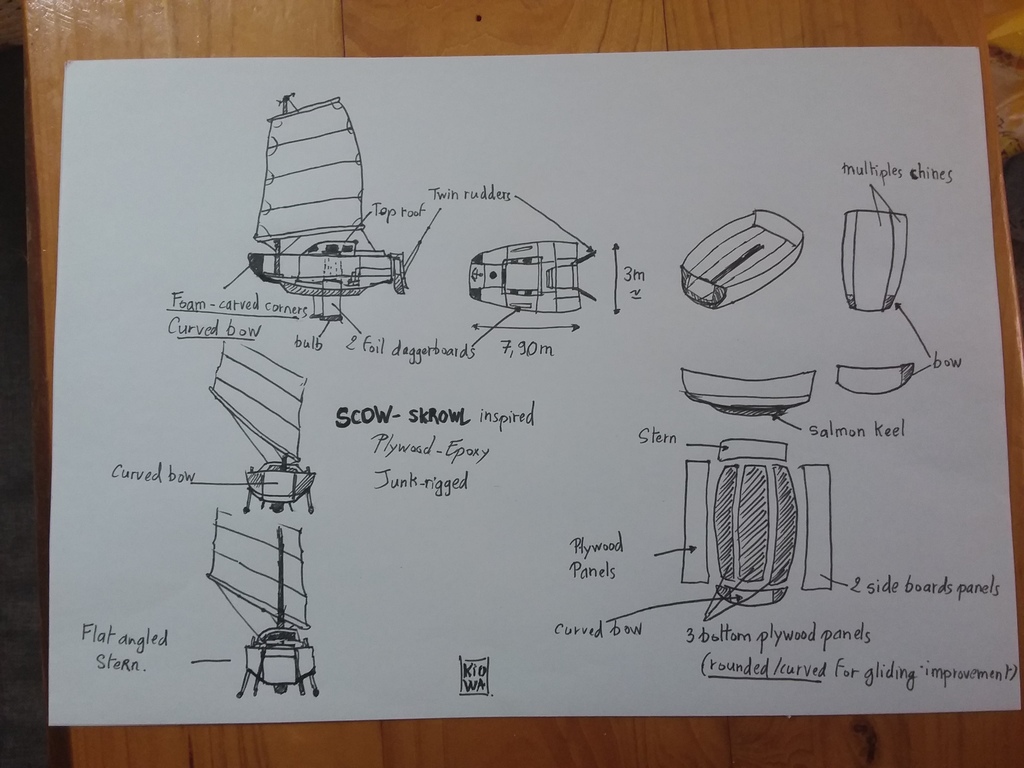 multiples chines
Twin rudders
Top roof
3m
Foam-carved corners
Curved bow
bulb
2 foil daggerboards
7,90m
bow
SCOW-SKROWL inspired
Plywood-Epoxy
Junk-rigged
salmon keel
Stern
Curved bow
Plywood
Panels
2 side boards panels
curved bow
3 bottom plywood panels
(rounded/curved for gliding improvement)
Flat angled
Stern.
KIO
WA.